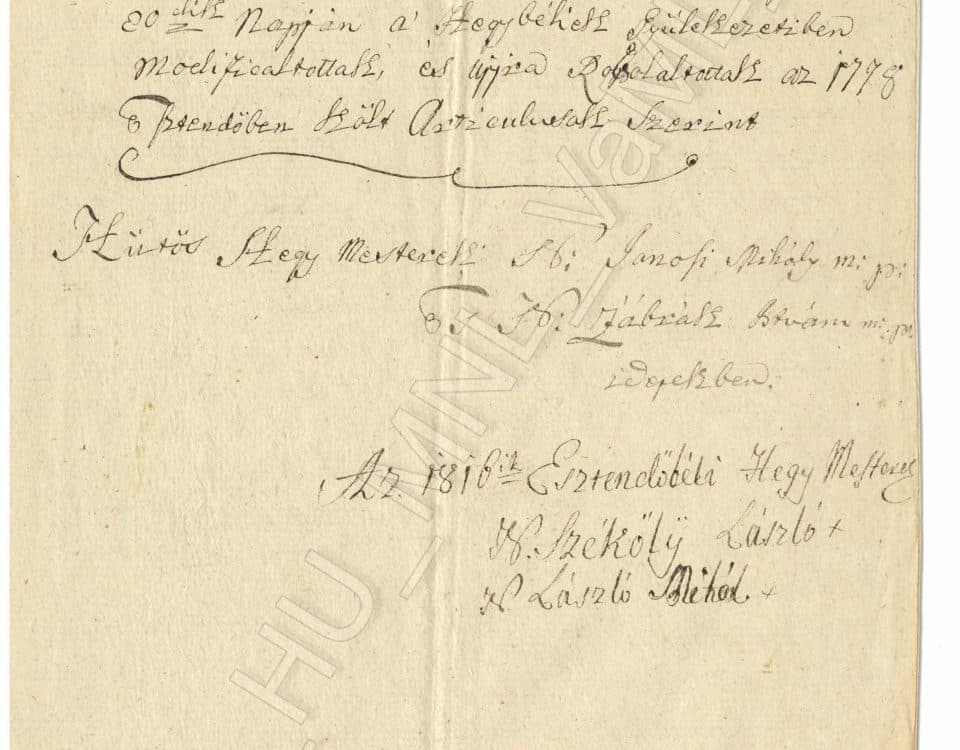 20dik Napján a' Hegybéliek Gyülekezetiben
Modificaltottak, és ujjra Roboláltottak az 1778
Esztendöben költ Articulusok Szerint
Hütös Hegy Mesterek N: Janosi Mihály m: pi
Ts N: Zábrák István m: p:
idejekben.
Az 1816ik Esztendőbéli Hegy Mesterek
N. Székölÿ László +
N László Mihál +
HU_MNL_VaML